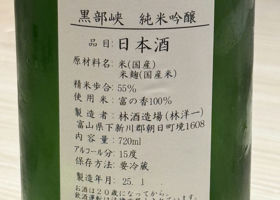 黒部峡　純米吟醸
品目：日本酒
原材料名：米(国産)
米麹(国産米)
精米歩合：55%
使用米：富の香100%
製造者：林酒造場(林洋一)
富山県下新川郡朝日町境1608
内容量：720ml
アルコール分：15度
保存方法：要冷蔵
製造年月：25.1
お酒は20歳になってから。